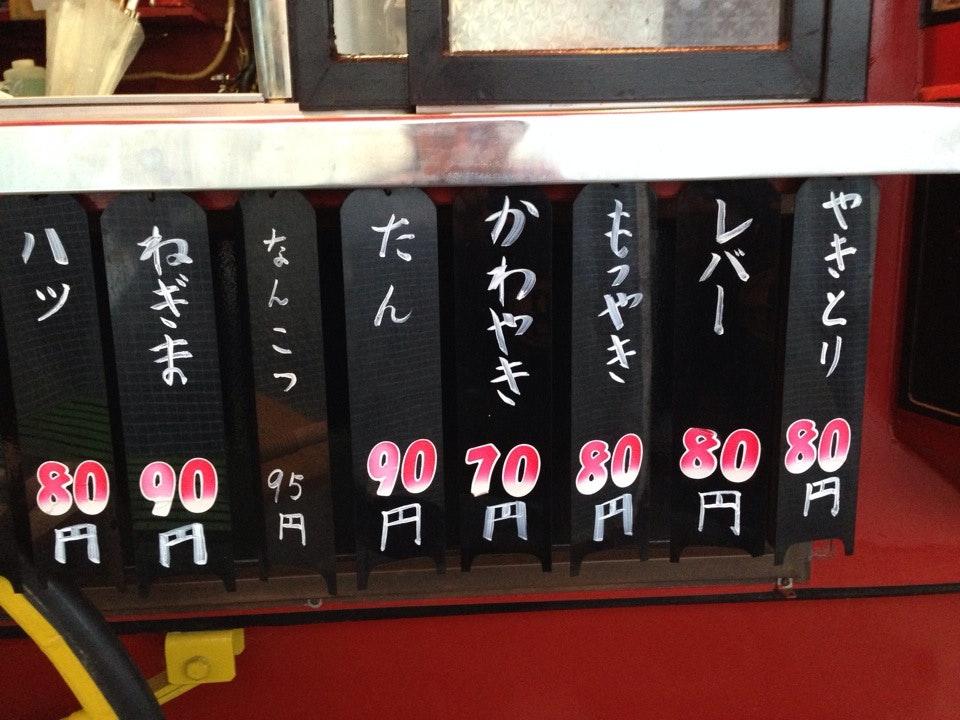 やきとり
80
円
レバー
80
円
もつやき
80
円
かわやき
70
円
たん
90
円
なんこつ
95
円
ねぎま
90
円
ハツ
80
円